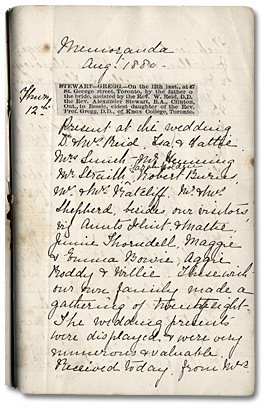 Memoranda
Aug. 1880.
STEWART—GREGG.—On the 12th inst., at 67
St. George street, Toronto, by the father o
the bride, assisted by the Rev. W. Reid, D.D.
the Rev. Alexander Stewart, B.A., Clinton,
Ont., to Bessie, eldest daughter of the Rev.
Prof. Gregg, D.D., of Knox College, Toronto.
Thurs.
12th
Present at the wedding
Dr & Mrs Reid, Isa & Hattie
Mrs Smith Mr Hemming
Mr Straith, Robert Burns
Mr & Mrs Ratcliff, Mr & Mrs
Shepherd, besides our visitors
viz Aunts & Mattie,
Jennie Thorndell, Maggie
& Emma Bowie, Aggie
Roddy & Willie. These with
our own family made a
gathering of twenty eight.
The wedding presents
were displayed & were very
numerous & valuable.
Received today from Mrs